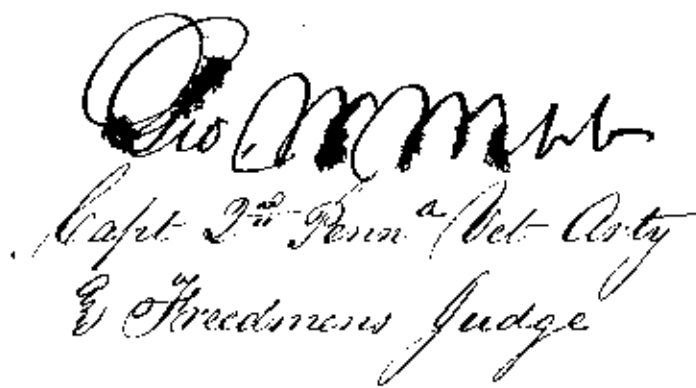 Geo. W Webb
Capt 2nd Penna Vet Arty
& Freedmens Judge